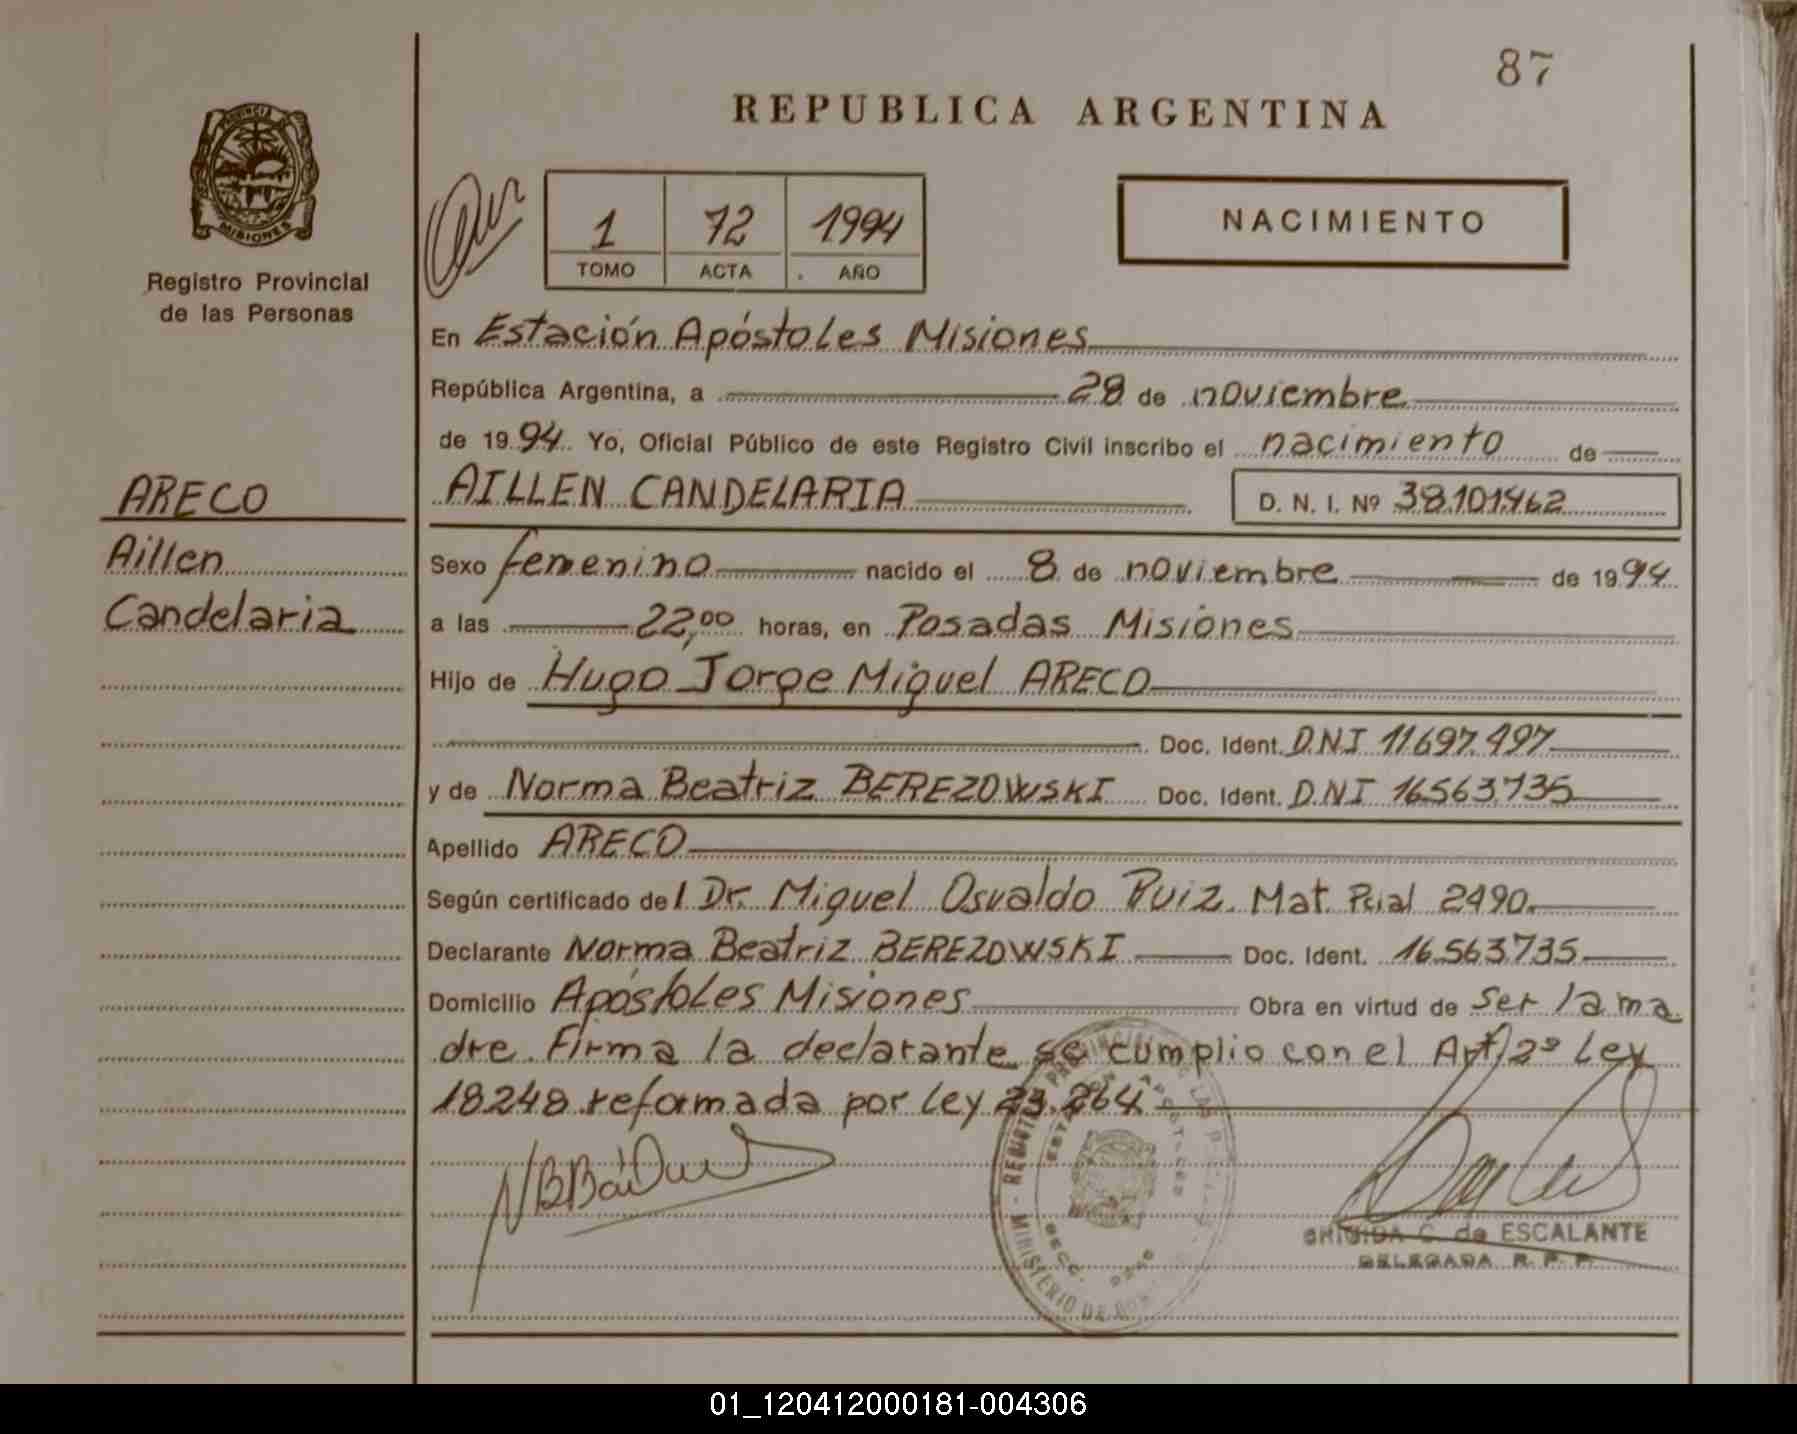 87
REPUBLICA ARGENTINA
PROVINCIA DE
MISIONES
Registro Provincial
de las Personas
1 72 1994
TOMO ACTA AÑO
NACIMIENTO
En Estación Apóstoles Misiones
República Argentina, a 28 de noviembre
de 1994 Yo, Oficial Público de este Registro Civil inscribo el nacimiento de
ARECO
AILLEN CANDELARIA D. N. I. Nº 38.101.462
Aillen
Candelaria
Sexo femenino nacido el 8 de noviembre de 1994
a las 22,00 horas, en Posadas Misiones
Hijo de Hugo Jorge Miguel ARECO
Doc. Ident. D.N.I 11.697.497
y de Norma Beatriz BEREZOWSKI Doc. Ident. D.N.I 16.563.735
Apellido ARECO
Según certificado del Dr. Miguel Osvaldo Ruiz. Mat. Pcial 2490.
Declarante Norma Beatriz BEREZOWSKI Doc. Ident. 16.563.735
Domicilio Apóstoles Misiones Obra en virtud de ser la ma
dre. Firma la declarante se cumplio con el Art 2º Ley
18248 reformada por Ley 23.264
C. de ESCALANTE
DELEGADA R. P. P.
01_120412000181-004306